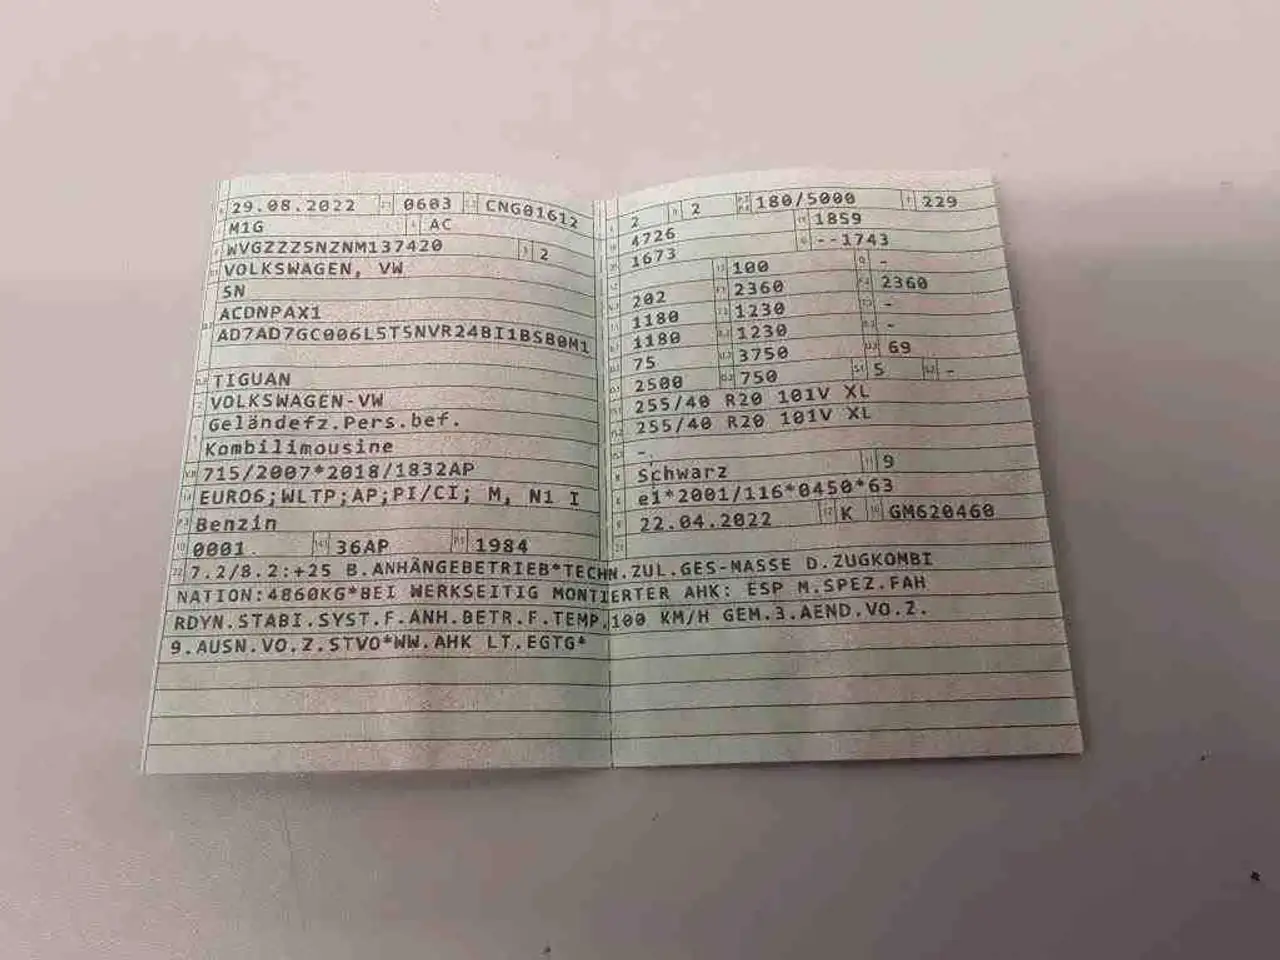 29.08.2022 0603 CNG01612
M1G AC
WVGZZZ5NZNM137420 2
VOLKSWAGEN, VW
5N
ACDNPAX1
AD7AD7GC006L5T5NVR24BI1BSB0M1
TIGUAN
VOLKSWAGEN-VW
Geländefz.Pers.bef.
Kombilimousine
715/2007*2018/1832AP
EURO6;WLTP;AP;PI/CI; M, N1 I
Benzin
0001 36AP 1984
2 2 180/5000 229
4726 1859
1673 --1743
100 -
202 2360 2360
1180 1230 -
1180 1230 -
75 3750 69
2500 750 5 -
255/40 R20 101V XL
255/40 R20 101V XL
-
Schwarz 9
e1*2001/116*0450*63
22.04.2022 K GM620460
7.2/8.2:+25 B.ANHÄNGEBETRIEB*TECHN.ZUL.GES-MASSE D.ZUGKOMBI
NATION:4860KG*BEI WERKSEITIG MONTIERTER AHK: ESP M.SPEZ.FAH
RDYN.STABI.SYST.F.ANH.BETR.F.TEMP.100 KM/H GEM.3.AEND.VO.Z.
9.AUSN.VO.Z.STVO*WW.AHK LT.EGTG*